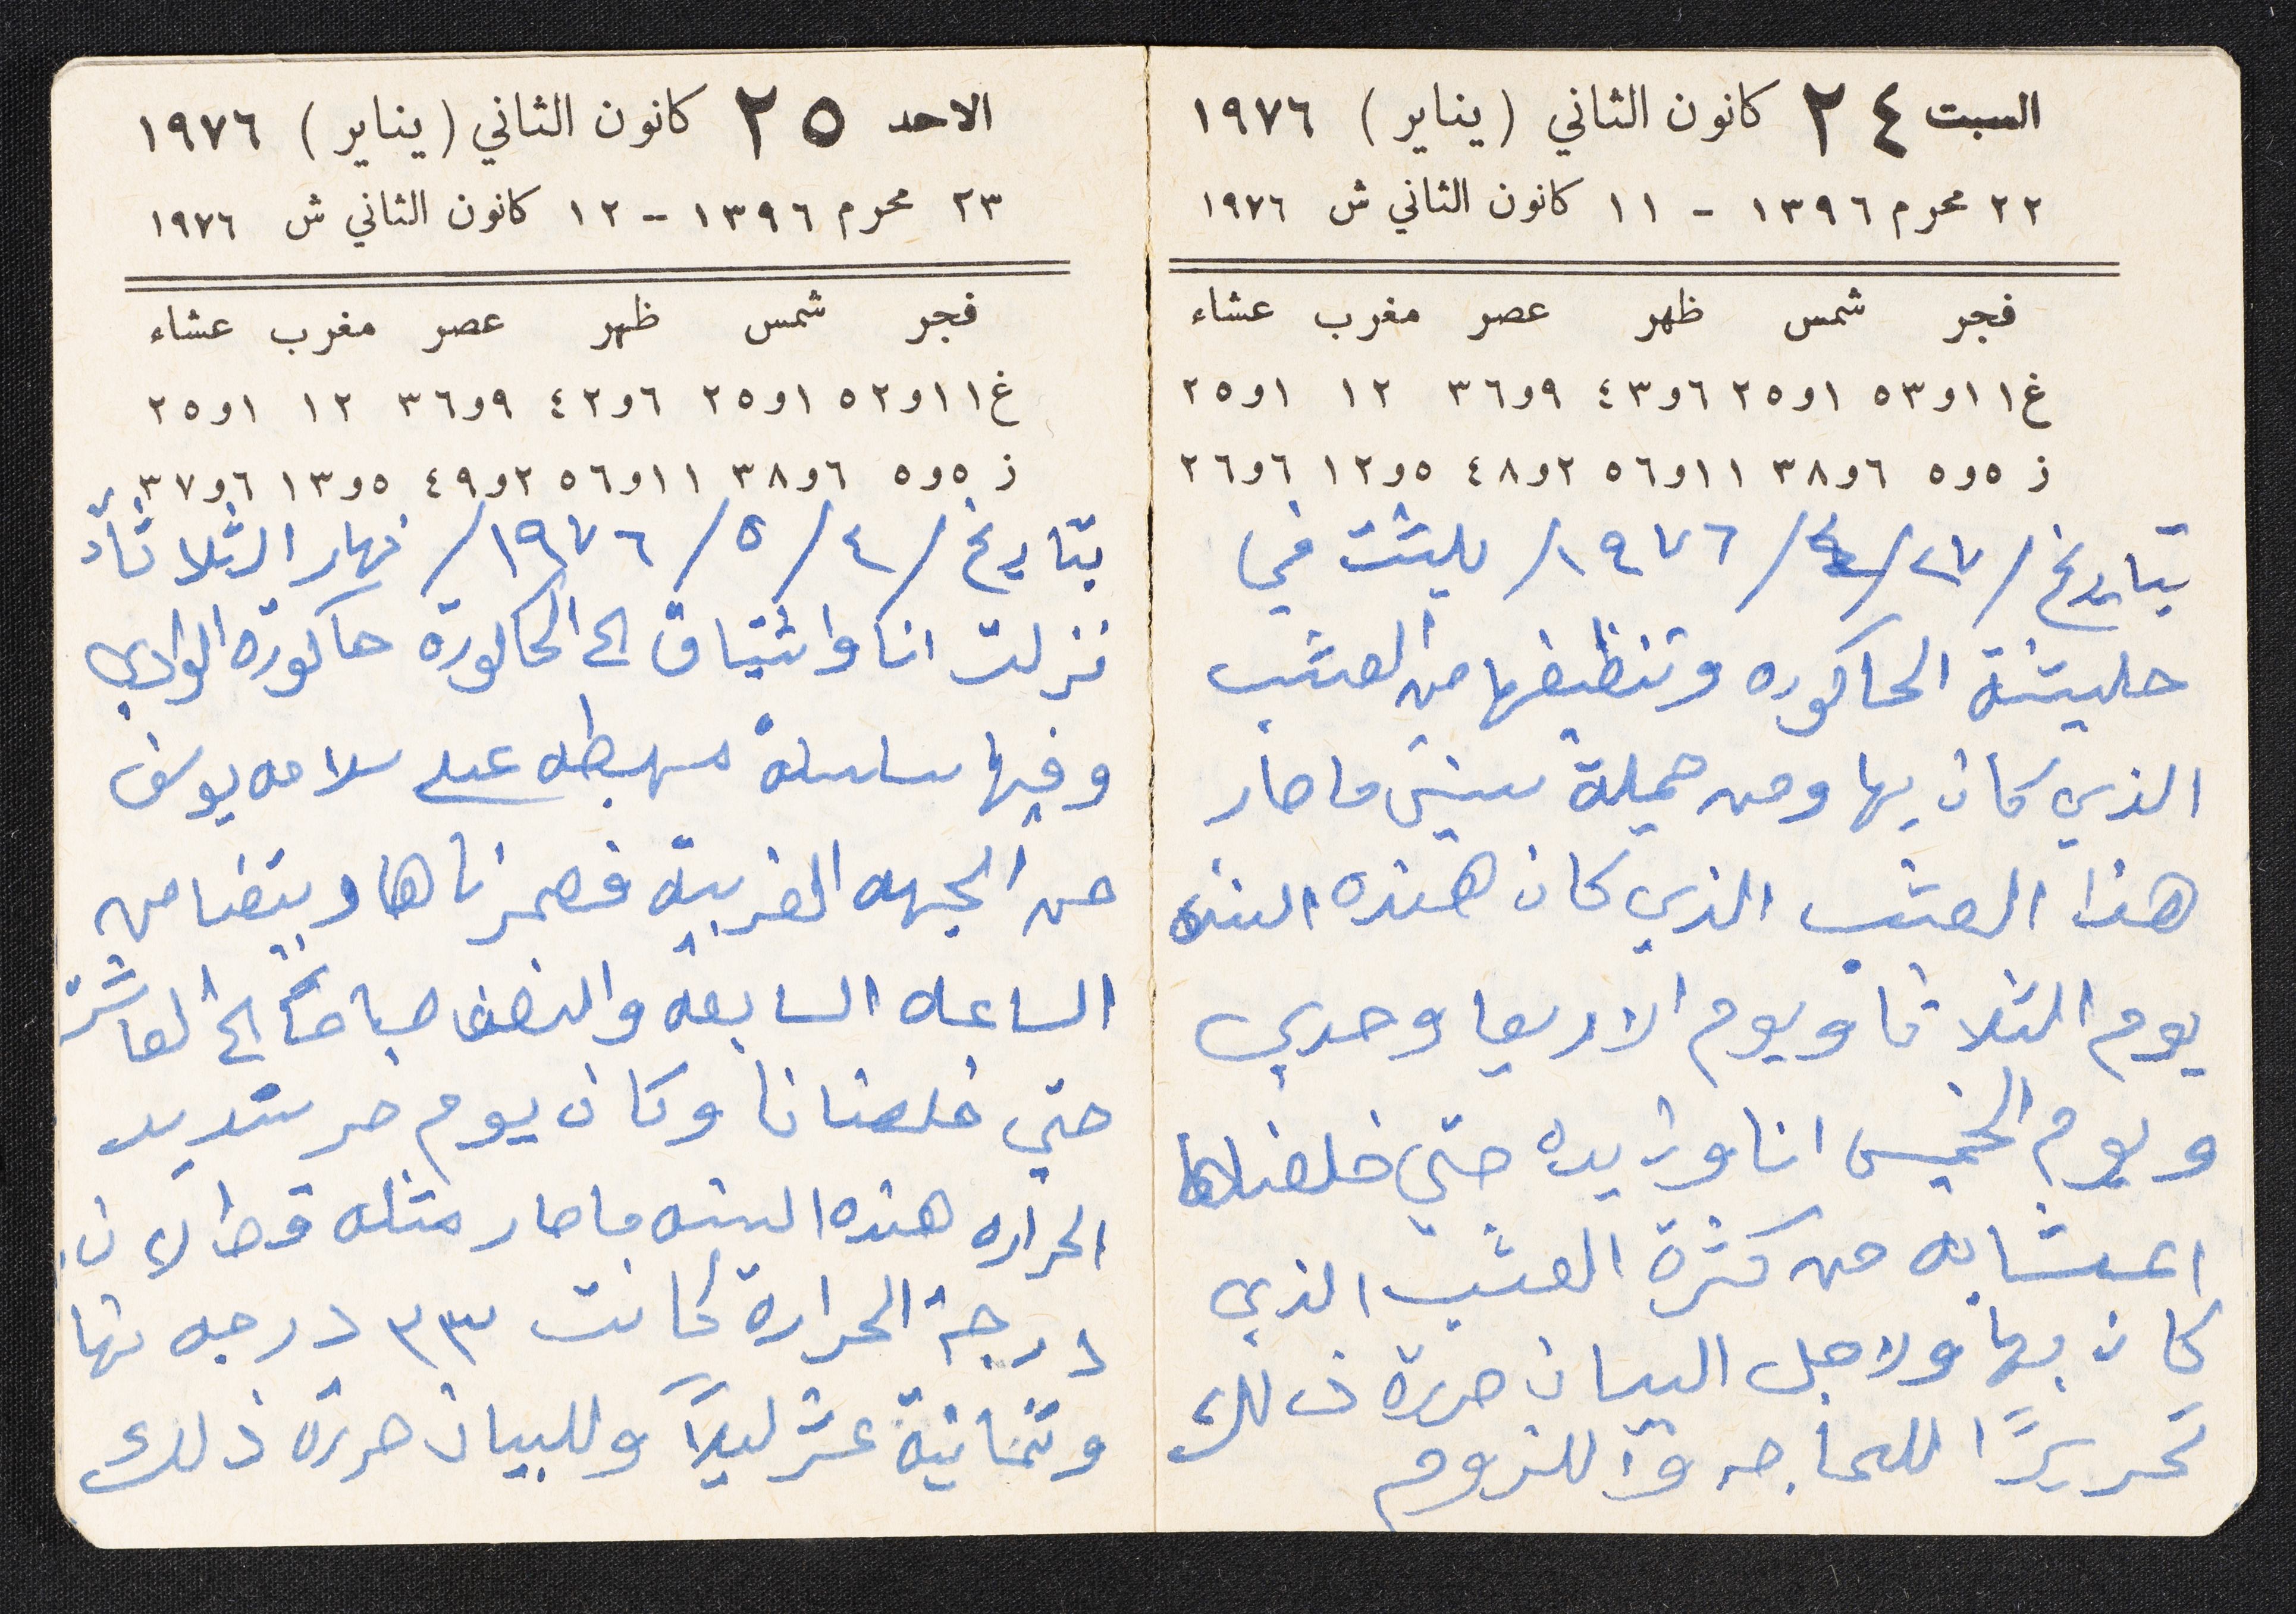 السبت ٢٤ كانون الثاني (يناير) ١٩٧٦
٢٢ محرم ١٣٩٦ - ١١ كانون الثاني ش ١٩٧٦
فجر شمس ظهر عصر مغرب عشاء
غ ١١و٥٣ ١و٢٥ ٦و٤٣ ٩و٣٦ ١٢ ١و٢٥
ز ٥و٥ ٦و٣٨ ١١و٥٦ ٢و٤٨ ٥و١٢ ٦و٢٦
بتاريخ /٢٧/٤/١٩٧٦/ بليشت في
حليشة الحاكوره وتنظيفها من العشب
الذي كان بها ومن جميلة سنين ما صار
هذا العشب الذي كان هنده السنه
يوم الثلاثا ويوم الاربعا وحدي
ويوم الخميس انا وزايده حتى خلصناها
اعشابه من كثرة العشب الذي
كان بها ولاجل البيان حررة ذلك
تحريرًا للحاجه و للزوم
الاحد ٢٥ كانون الثاني (يناير) ١٩٧٦
٢٣ محرم ١٣٩٦ - ١٢ كانون الثاني ش ١٩٧٦
فجر شمس ظهر عصر مغرب عشاء
غ ١١و٥٢ ١و٢٥ ٦و٤٢ ٩و٣٦ ١٢ ١و٢٥
ز ٥و٥ ٦و٣٨ ١١و٥٦ ٢و٤٩ ٥و١٣ ٦و٣٧
بتاريخ /٤/٥/١٩٧٦/ نهار الثلاثاء
نزلت انا واشتياق الى الحاكورة حاكورة الوادي
وفيها سلسلة مهبطه على سلامه يوسف
من الجهه الغربية فعمرناها وبقينا من
الساعه السابعه والنصف صباحًا الى العاشرة
حتى خلصنانا وكان يوم حر شديد
الحراره هنده السنه ما صار مثله قط الان.
درجة الحرارة كانت ٣٣ درجه نها
وثمانية عشر ليلاً وللبيان حررة ذلك